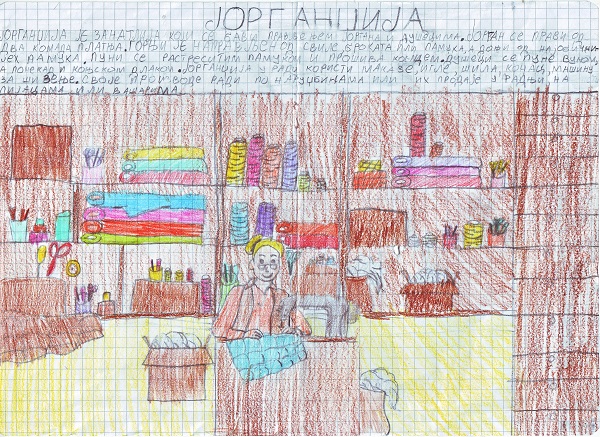 ЈОРГАНЏИЈА
ЈОРГАНЏИЈА ЈЕ ЗАНАТЛИЈА КОЈИ СЕ БАВИ ПРАВЉЕЊЕМ ЈОРГАНА И ДУШЕЦИМА. ЈОРГАН СЕ ПРАВИ ОД
ДВА КОМАДА ПЛАТНА. ГОРЊИ ЈЕ НАПРАВЉЕН ОД СВИЛЕ БРОКАТА ИЛИ ПАМУКА, А ДОЊИ ОД
ПАМУКА. ПУНИ СЕ РАСТРЕСИТИМ ПАМУКОМ И ПРОШИВА КОНЦЕМ. ДУШЕЦИ СЕ ПУНЕ ВУНОМ,
А ПОНЕКАД И КОЊСКОМ ДЛАКОМ. ЈОРГАНЏИЈА У РАДУ КОРИСТИ МАКАЗЕ, ИГЛЕ, ШИЛА, КОНАЦ, МАШИНУ
ЗА ШИВЕЊЕ. СВОЈЕ ПРОИЗВОДЕ РАДИ ПО НАРУЏБИНАМА ИЛИ ИХ ПРОДАЈЕ У РАДЊИ НА
ПИЈАЦАМА ИЛИ ВАШАРИМА.